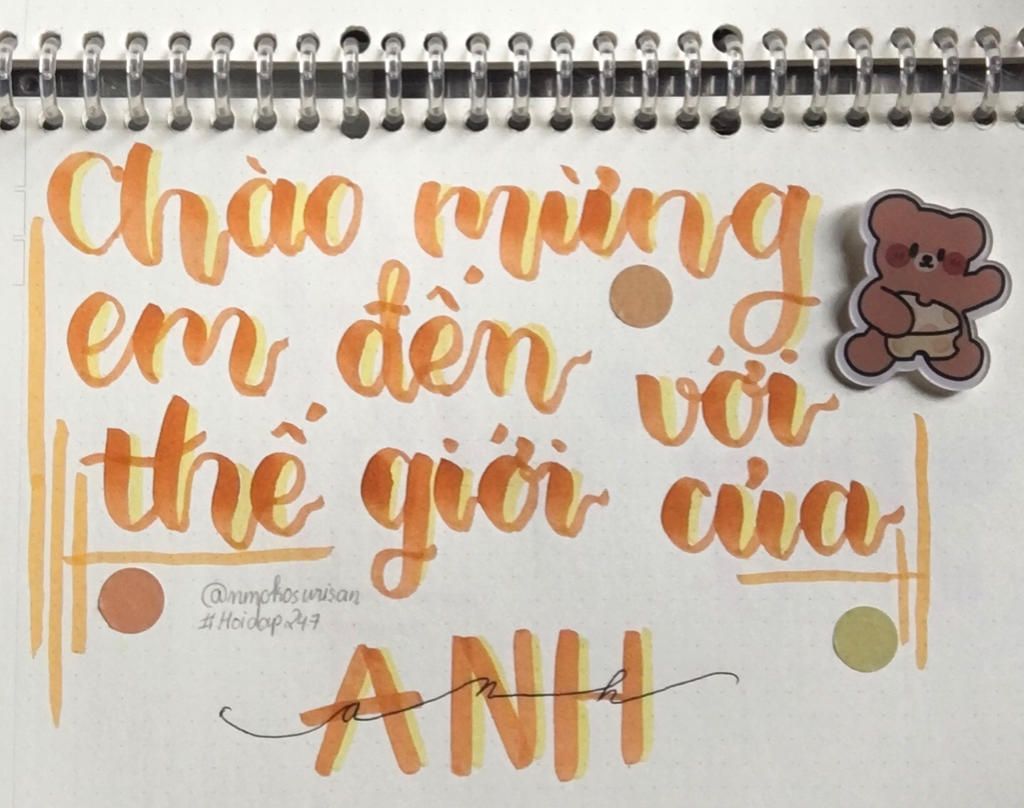 Chào mừng
em đến với
thế giới của
@nmokosurisan
#Hoidap247
ANH
anh